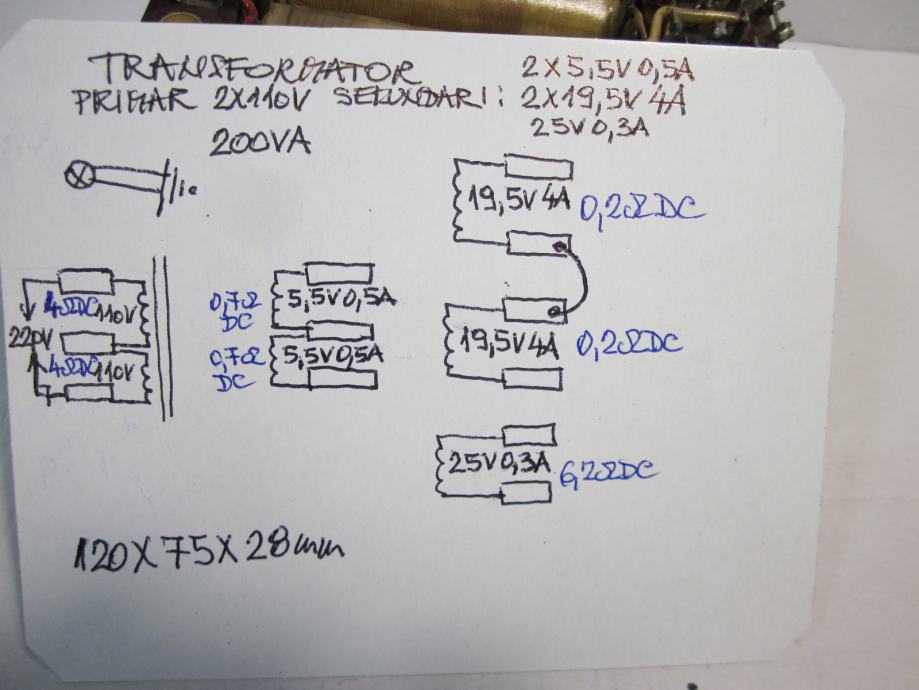 TRANSFORMATOR 2X5,5V 0,5A
PRIMAR 2X110V SEKUNDARI: 2X19,5V 4A
25V 0,3A
200VA
19,5V 4A 0,2Ω DC
4ΩDC 110V
220V
4ΩDC 110V
0,7Ω DC
5,5V 0,5A
0,7Ω DC
5,5V 0,5A
19,5V 4A 0,2Ω DC
25V 0,3A 6,2ΩDC
120X75X28mm